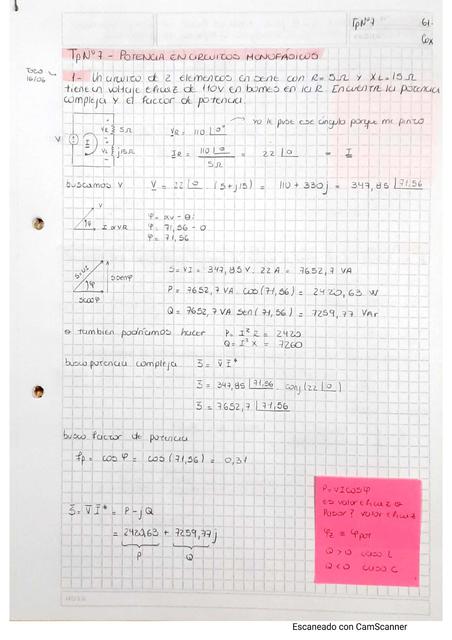 TpN°7
61.
Cox
TpN°7 - POTENCIA EN CIRCUITOS MONOFÁSICOS
16/06
1- Un circuito de 2 elementos en serie con R = 5Ω y XL = 15Ω
tiene un voltaje eficaz de 110V en bornes en la R. Encuentre la potencia
compleja y el factor de potencia.
yo le puse ese ángulo porque me pinto
V
VR
5Ω
I
VL
j15Ω
VR = 110 |0°
IR = 110 |0 / 5Ω = 22 |0 = I
buscamos V
V = 22 |0 (5+j15) = 110 + 330j = 347,85 |71,56
V
φ
I
VR
φ = αv - θi
φ = 71,56 - 0
φ = 71,56
S=VI
φ
S senφ
S cosφ
S = VI = 347,85V. 22A = 7652,7 VA
P = 7652,7 VA. cos(71,56) = 2420,63 W
Q = 7652,7 VA sen(71,56) = 7259,77 VAr
o tambien podriamos hacer
P = I² R = 2420
Q = I² X = 7260
busco potencia compleja
S = V I*
S = 347,85 |71,56 conj(22 |0)
S = 7652,7 |71,56
busco factor de potencia
fp = cos φ = cos(71,56) = 0,31
S = V I* = P-jQ
= 2420,63 + 7259,77j
P
Q
P = VIcosφ
es valor eficaz o
Pasar? valor eficaz
φz = φpot
Q>0 caso L
Q<0 caso C
Escaneado con CamScanner